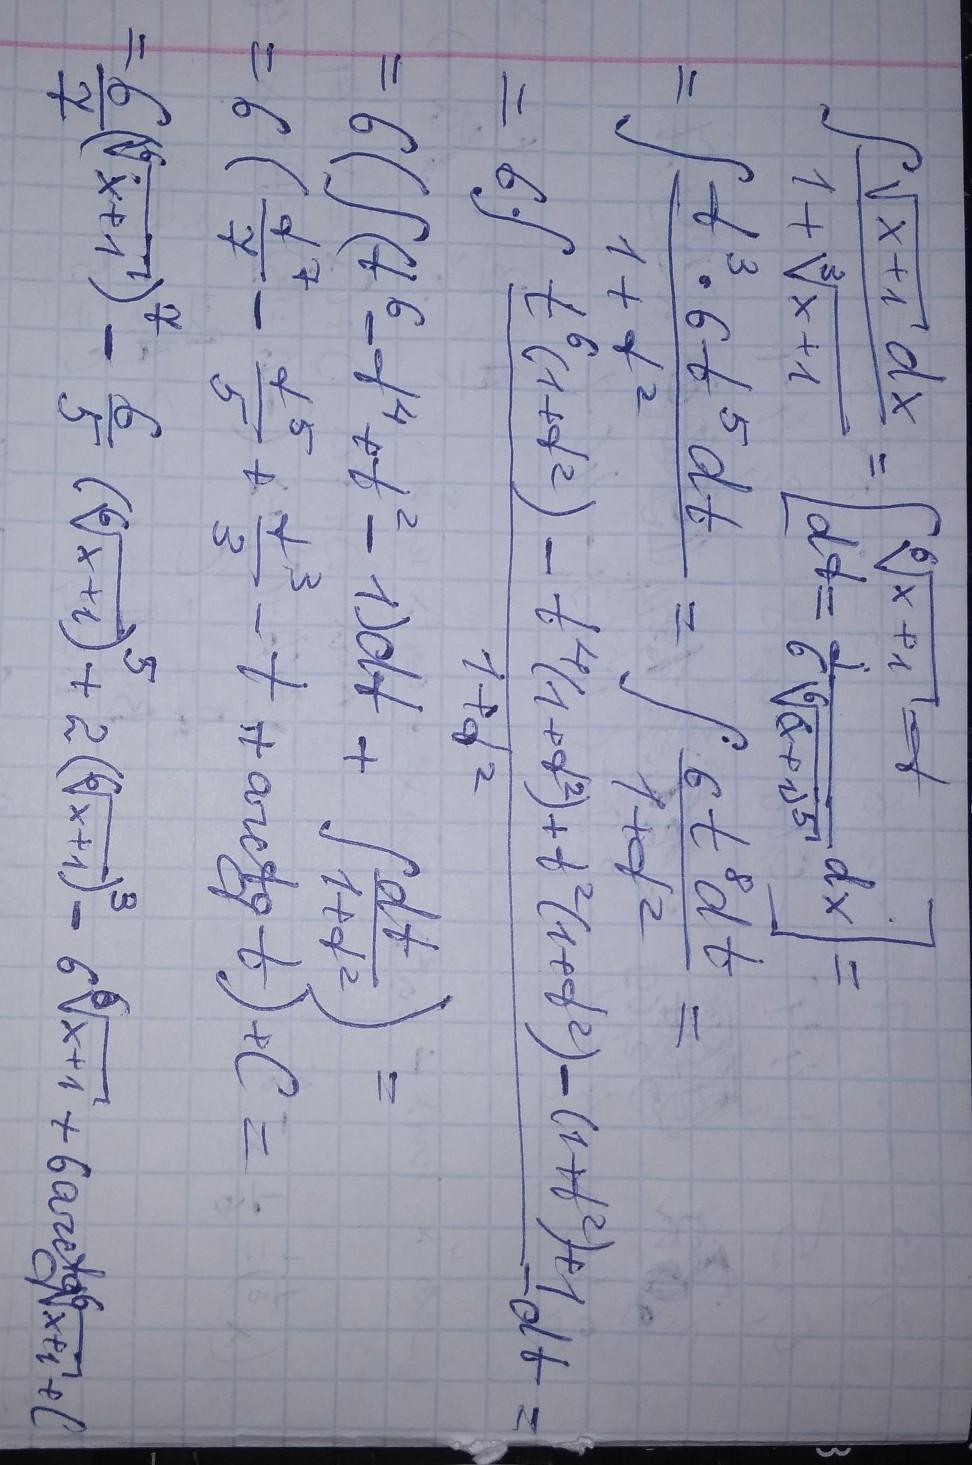 ∫ √(x+1) dx / (1 + ∛(x+1)) = [ ⁶√(x+1) = t
dt = 1 / (6 ⁶√(x+1)⁵) dx ] =
= ∫ t³ · 6t⁵ dt / (1 + t²) = ∫ 6t⁸ dt / (1+t²) =
= 6 ∫ (t⁶(1+t²) − t⁴(1+t²) + t²(1+t²) − (1+t²) + 1) / (1+t²) dt =
= 6 (∫ (t⁶ − t⁴ + t² − 1) dt + ∫ dt / (1+t²)) =
= 6 (t⁷/7 − t⁵/5 + t³/3 − t + arctg t) + C =
= 6/7 (⁶√(x+1))⁷ − 6/5 (⁶√(x+1))⁵ + 2 (⁶√(x+1))³ − 6 ⁶√(x+1) + 6 arctg ⁶√(x+1) + C